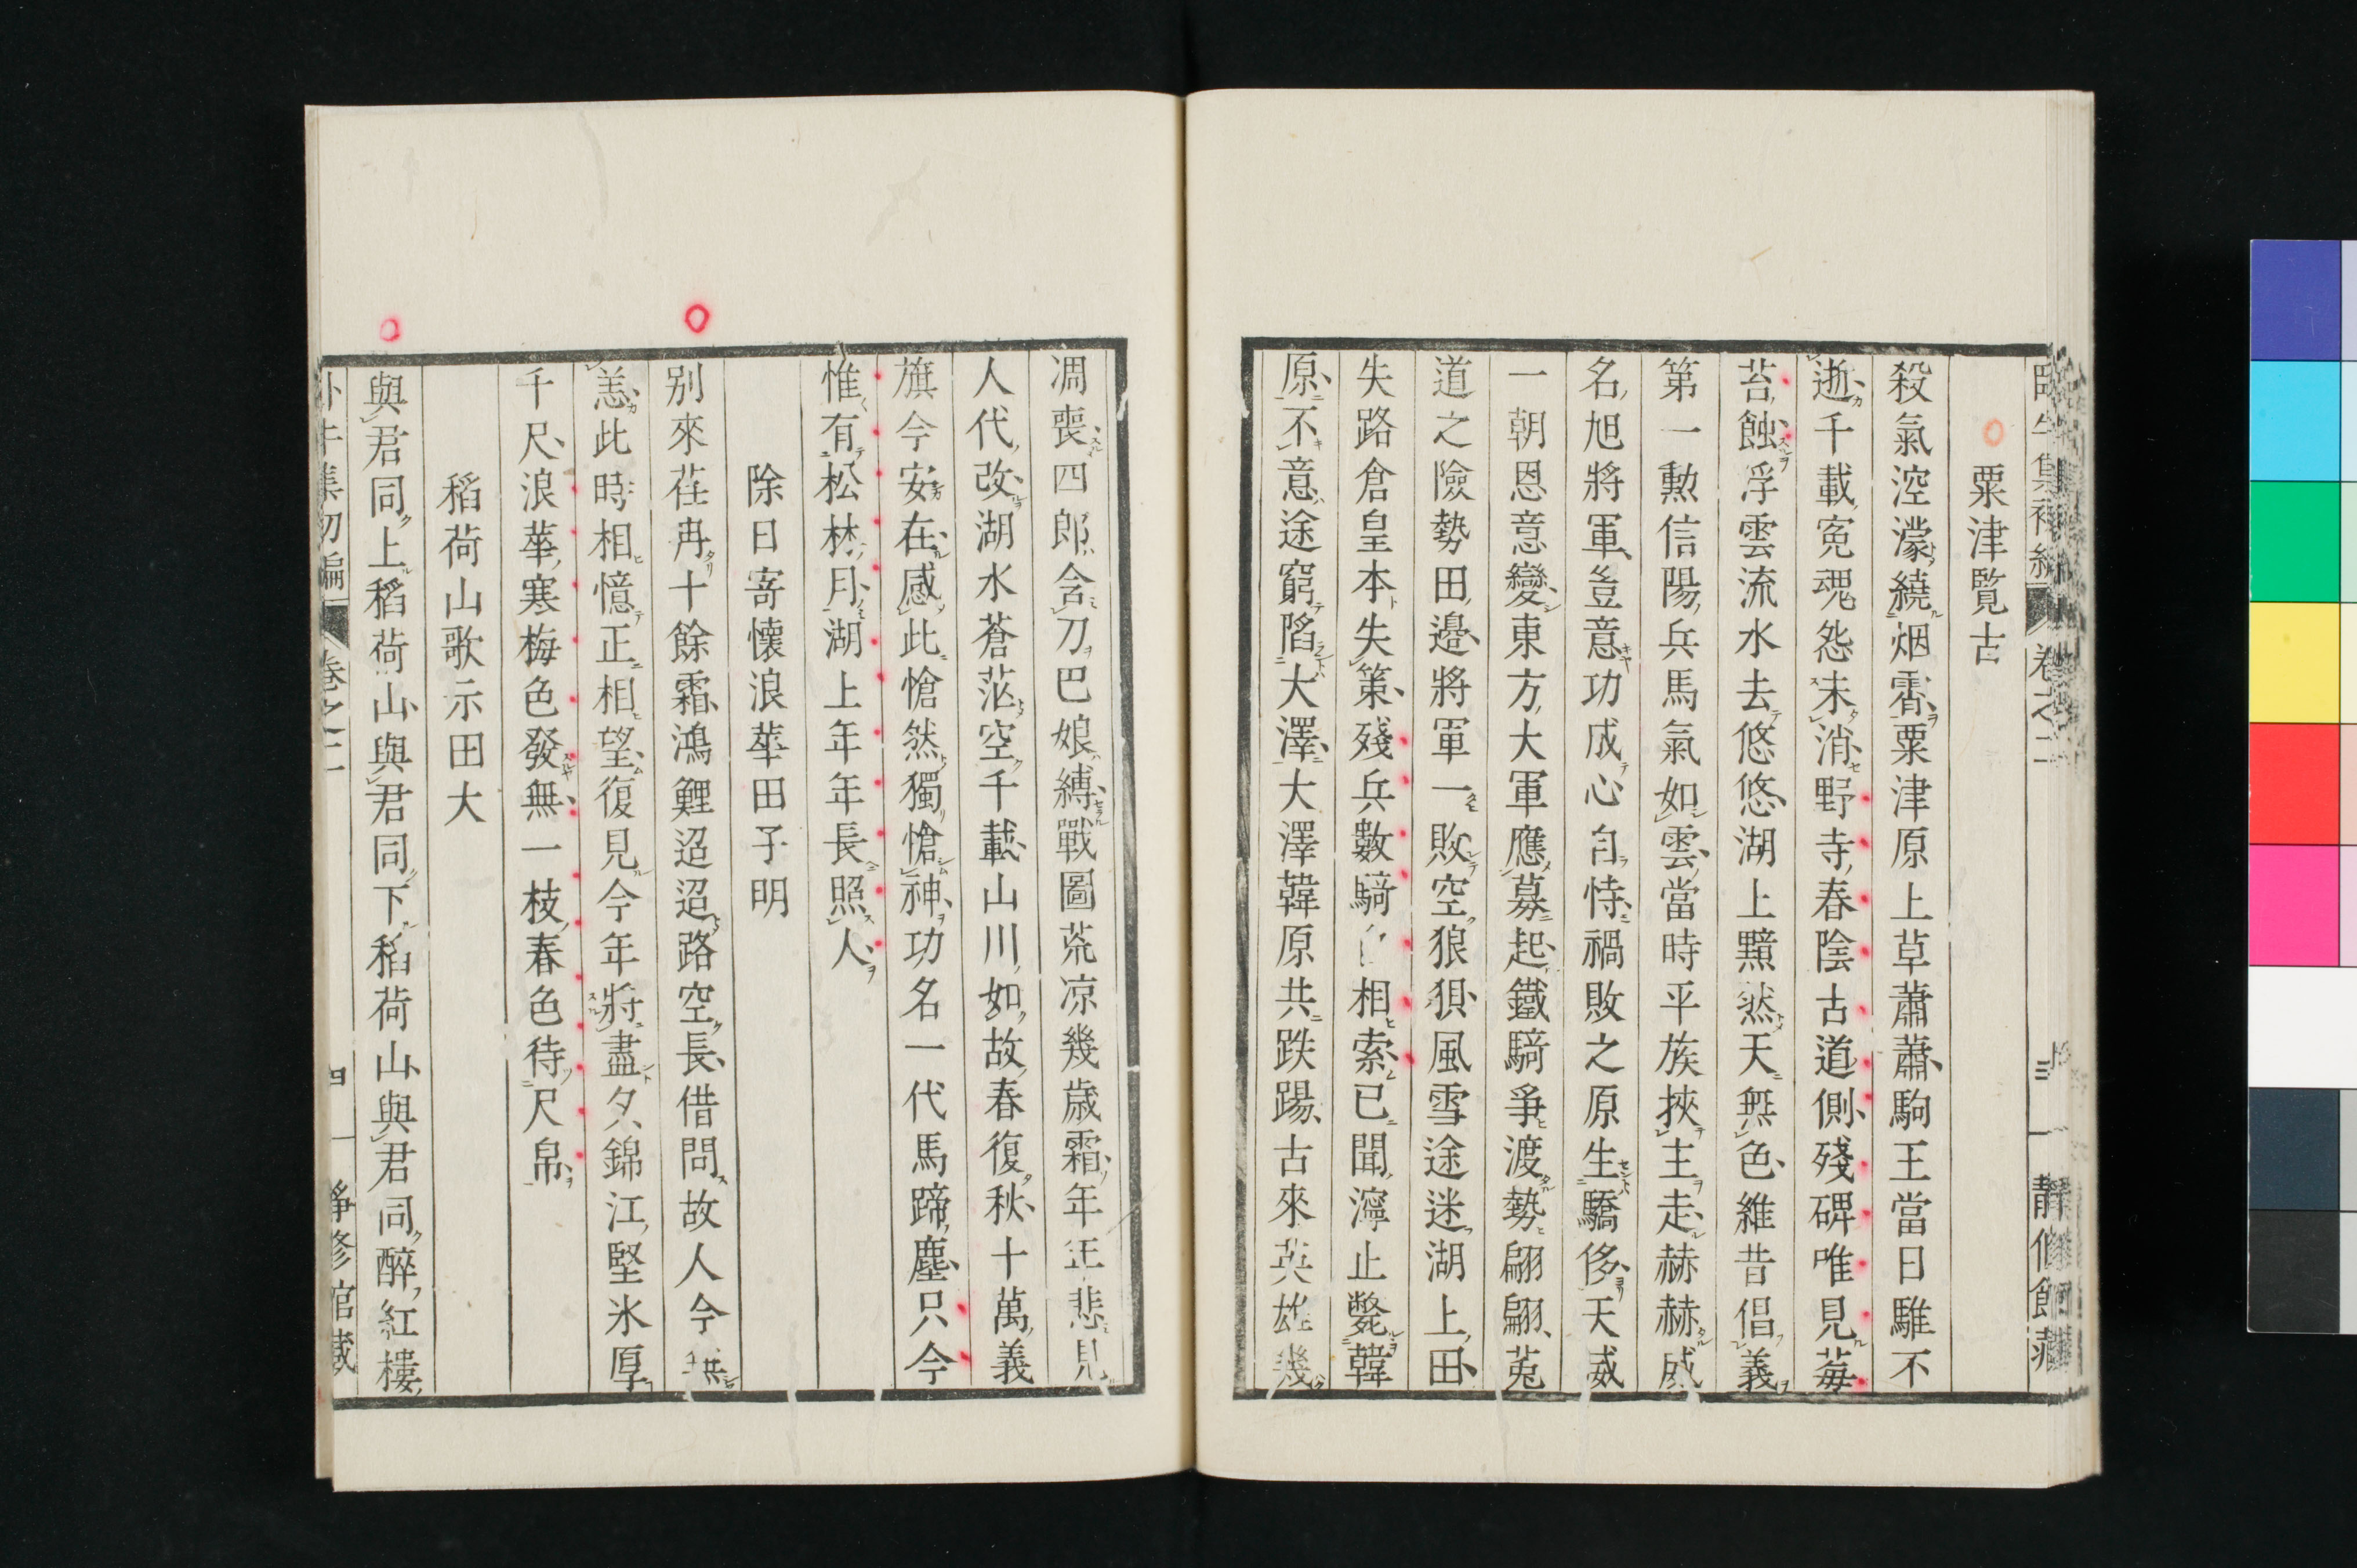 粟津覧古
殺氣涳濛繞烟霄粟津原上草蕭蕭駒王當日騅不
逝千載寃魂怨未消野寺春陰古道側殘碑唯見莓
苔蝕浮雲流水去悠悠湖上黯然天無色維昔倡義
第一勲信陽兵馬氣如雲當時平族挾主走赫赫威
名旭將軍豈意功成心自恃禍敗之原生驕侈天威
一朝恩意變東方大軍應募起鐵騎爭渡勢翩翩菟
道之險勢田邊將軍一敗空狼狽風雪途迷湖上田
失路倉皇本失策殘兵數騎相索已聞濘止斃韓
原不意途窮陷大澤大澤韓原共跌踼古來英雄幾
凋喪四郎含刀巴娘縛戰圖荒凉幾歳霜年年悲見
人代改湖水蒼茫空千載山川如故春復秋十萬義
旗今安在感此愴然獨愴神功名一代馬蹄塵只今
惟有松林月湖上年年長照人
除日寄懷浪華田子明
别來荏冉十餘霜鴻鯉迢迢路空長借問故人今無
恙此時相憶正相望復見今年將盡夕錦江堅氷厚
千尺浪華寒梅色發無一枝春色待尺帛
稻荷山歌示田大
與君同上稻荷山與君同下稻荷山與君同醉紅樓
卷之二
四
靜修館藏